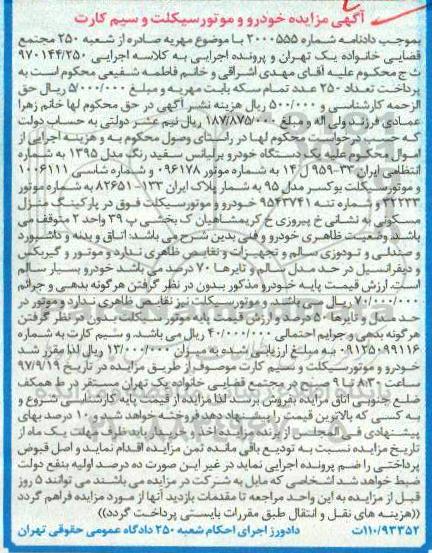 آگهی مزایده خودرو و موتورسیکلت و سیم کارت
بموجب دادنامه شماره ۲۰۰۰۵۵۵ با موضوع مهریه صادره از شعبه ۲۵۰ مجتمع
قضایی خانواده یک تهران و پرونده اجرایی به کلاسه اجرایی ۹۷۰۱۴۴/۲۵۰
ث ج محکوم علیه آقای مهدی اشراقی و خانم فاطمه شفیعی محکوم است به
پرداخت تعداد ۲۵۰ عدد تمام سکه بابت مهریه و مبلغ ۵/۰۰۰/۰۰۰ ریال حق
الزحمه کارشناسی و ۵۰۰/۰۰۰ ریال هزینه نشر آگهی در حق محکوم لها خانم زهرا
عمادی فرزند ولی اله و مبلغ ۱۸۷/۸۷۵/۰۰۰ ریال نیم عشر دولتی به حساب دولت
که حسب درخواست محکوم لها در راستای وصول محکوم به و هزینه اجرایی از
اموال محکوم علیه یک دستگاه خودرو برلیانس سفید رنگ مدل ۱۳۹۵ به شماره
انتظامی ایران ۳۳-۹۵۹ ل ۱۴ به شماره موتور ۰۹۶۱۷۸ و شماره شاسی ۱۰۰۶۱۱۱
و موتورسیکلت بوکسر مدل ۹۵ به شمار پلاک ایران ۱۳۳-۸۲۶۵۱ به شماره موتور
۳۲۲۳۳ و شماره تنه ۹۵۴۳۷۴۱ خودرو و موتورسیکلت فوق در پارکینگ منزل
مسکونی به نشانی خ پیروزی خ کریمشاهیان ک بخشی پ ۳۹ واحد ۲ متوقف می
باشد وضعیت ظاهری خودرو و فنی بدین شرح می باشد: اتاق و بدنه و داشبورد
و صندلی و تودوزی سالم و تجهیزات و نقایص ظاهری ندارد و موتور و گیربکس
و دیفرانسیل در حد مدل سالم و تایرها ۷۰ درصد می باشد خودرو بسیار سالم
است. ارزش قیمت پایه خودرو مذکور بدون در نظر گرفتن هرگونه بدهی و جرائم
۷۰/۰۰۰/۰۰۰ ریال می باشد. و موتورسیکلت نیز نقایص ظاهری ندارد و موتور در
حد مدل و تایرها ۵۰ درصد و ارزش قیمت پایه موتورسیکلت بدون در نظر گرفتن
هر گونه بدهی و جرایم احتمالی ۴۰/۰۰۰/۰۰۰ ریال می باشد. و سیم کارت به شماره
۰۹۱۲۵۰۹۹۱۱۶ به مبلغ ارزیابی شده به میزان ۱۳/۰۰۰/۰۰۰ ریال لذا مقرر شد
خودرو و موتورسیکلت و سیم کارت موصوف از طریق مزایده در تاریخ ۹۷/۹/۱۹
ساعت ۸:۳۰ تا ۹ صبح در مجتمع قضایی خانواده یک تهران مستقر در ط همکف
ضلع جنوبی اتاق مزایده بفروش برسد لذا مزایده از قیمت پایه کارشناسی شروع و
به کسی که بالاترین قیمت را پیشنهاد دهد فروخته خواهد شد و ۱۰ درصد بهای
پیشنهادی فی المجلس از برنده مزایده اخذ و خریدار باید ظرف مهلت یک ماه از
تاریخ مزایده نسبت به تودیع باقی مانده ثمن مزایده اقدام نماید و اصل قبوض
پرداختی را ضم پرونده اجرایی نماید در غیر این صورت ده درصد اولیه بنفع دولت
ضبط خواهد شد اشخاصی که مایل به شرکت در مزایده می باشند می توانند ۵ روز
قبل از مزایده به این واحد مراجعه تا مقدمات بازدید آنها از مورد مزایده فراهم گردد
((هزینه های نقل و انتقال طبق مقررات بایستی پرداخت گردد))
۱۱۰/۹۳۳۵۲ت دادورز اجرای احکام شعبه ۲۵۰ دادگاه عمومی حقوقی تهران